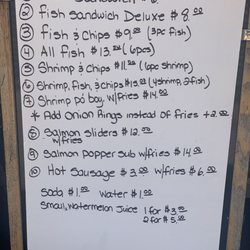 ② fish Sandwich Deluxe $8.00
③ fish & chips $9.00 (3pc fish)
④ All fish $13.00 (6pcs)
⑤ Shrimp & Chips $11.00 (6pc shrimp)
⑥ Shrimp, fish, & chips $15.00 (4shrimp, 2fish)
⑦ Shrimp po' boy w/fries $14.00
* Add Onion Rings instead of fries +2.00
⑧ Salmon sliders $12.00
w/fries
⑨ Salmon popper sub w/fries $14.00
⑩ Hot Sausage $3.00 w/fries $6.00
Soda $1.00 Water $1.00
Small watermelon Juice 1 for $3.00
2 for $5.00